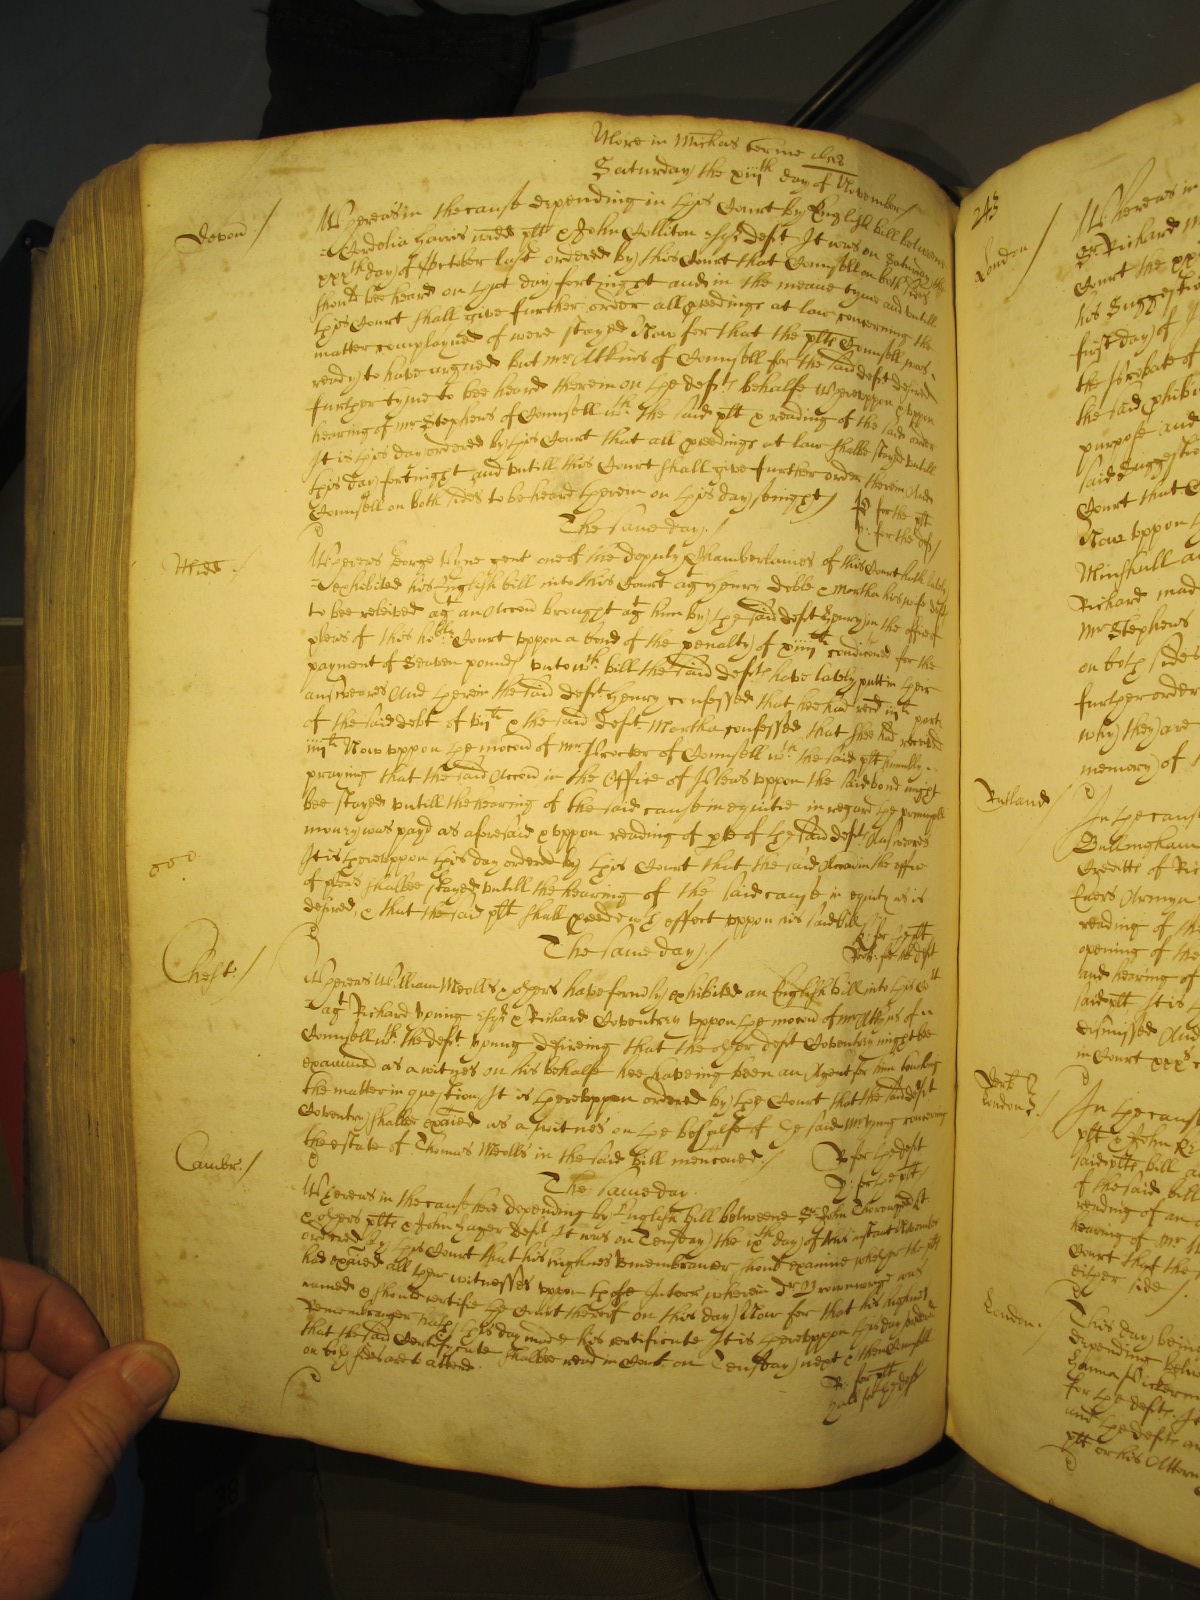 More in Michas terme 1658
Saturday the xiijth day of November
Devon
Whereas in the cause depending in this Court by English bill betweene
Cordelia Harris widd plt & John Colliton Esqr deft It was on Saturday the
xxxth day of October last ordered by this Court that Counsell on both sides
should bee heard on that day fortnight and in the meane tyme and untill
this Court shall give further order all pceedings at law concerning the
matter complayned of were stayed Now for that the plts Counsell was
ready to have argued but Mr Atkins of Counsell for the said deft desired
further tyme to bee heard therein on the defts behalfe Whereuppon & uppon
hearing of Mr Stephens of Counsell wth the said plt & reading of the said order
It is this day ordered by this Court that all pceedings at law shalbe stayed untill
this day fortnight and untill this Court shall give further order therein And
Counsell on both sides to be heard therein on this day senight
for the plt
for the deft
The same day
Midd
Whereas George Wyne gent one of the deputy Chamberlaines of this Court hath lately
exhibited his English bill into this Court agt Henry Doble & Martha his wife defts
to bee releived agt an Accon brought agt him by the said deft Henry in the office of
pleas of this noble Court uppon a bond of the penalty of xiiijth condiconed for the
payment of Seaven pounds unto wch bill the said defts have lately putt in their
answeares And therein the said deft Henry confessed that hee had recd iijth parte
of the said debt of vijth & the said deft Martha confessed that shee had received
iiijth Now uppon the mocon of Mr Procter of Counsell wth the said plt humbly
praying that the said Accon in the Office of Pleas uppon the said bond might
bee stayed untill the hearing of the said cause in equitie in regard the principall
money was payd as aforesaid & uppon reading of pte of the said defts Answeares
It is thereuppon this day ordered by this Court that the said Accon in the office
of pleas shalbee stayed untill the hearing of the said cause in equity as is
desired, & that the said plt shall pceede wth effect uppon his said bill
for the plt
for the deft
The same day
Chest:
Whereas William Meolls & others have formerly exhibited an English bill into this Cort
agt Richard Young Esqr & Richard Coventrey uppon the mocon of Mr Atkins of
Counsell wth the deft Young desireing that the other deft Coventry might bee
examined as a witnes on his behalfe hee haveing been an Agent for him touching
the matter in question It is thereuppon ordered by the Court that the said deft
Coventry shalbee exaied as a witnes on the behalfe of the said Mr Young concerning
the estate of Thomas Meolls in the said Bill menconed
for the deft
for the plt
The same day
Cambr:
Whereas in the cause here depending by English bill betweene Sr John
& others plts & John Hager deft It was on Tuesday the ixth day of this instant November
ordered by this Court that his highnes Remembrancer should examine whether the plt
had exaied all their witnesses uppon those Interr wherein Dr was
named & should certifie the Court thereof on this day Now for that his highnes
Remembrancer hath this day made his certificate It is thereuppon this day ordered
that the said Certificate shalbee read in Court on Tuesday next & then Counsell
on both sides are to attend
for plt
for the deft
243
London
Whereas in
Sr Richard
Court the
his Suggestio
first day of
the probate of
the said
purpose and
said Suggestio
Court that
Now uppon
Minshull
Richard mad
Mr Stephens
on both sides
further order
why they are
memory of
Rutland
In the cause
Bullingham
of Ric
reading of the
opening of the
and hearing of
said plt It is
dismissed And
in Court
London
In the cause
plt & John
said plts bill
of the said bill
reading of an
hearing of Mr
Court that the
either side
London
This day being
depending betw
for the defts It
and the defts
plt or his Attorn